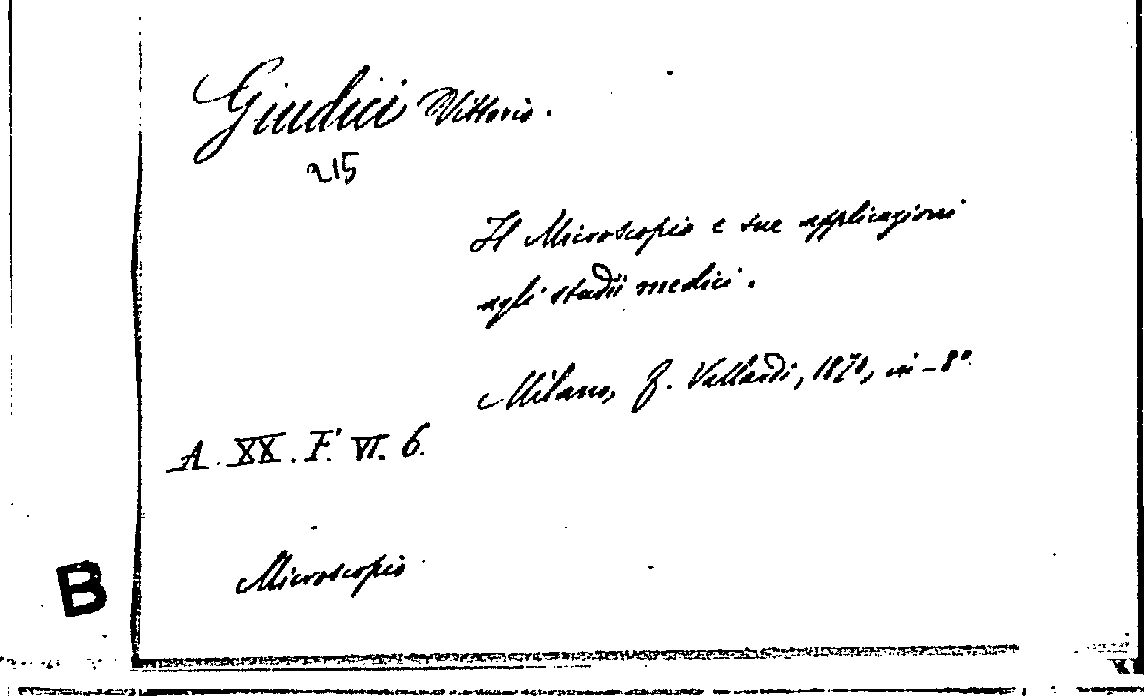 Giudici Vittorio.
215
Il Microscopio e sue applicazioni
agli studii medici.
Milano, F. Vallardi, 1871, in-8°
A. XX. F. VI. 6.
Microscopio
B